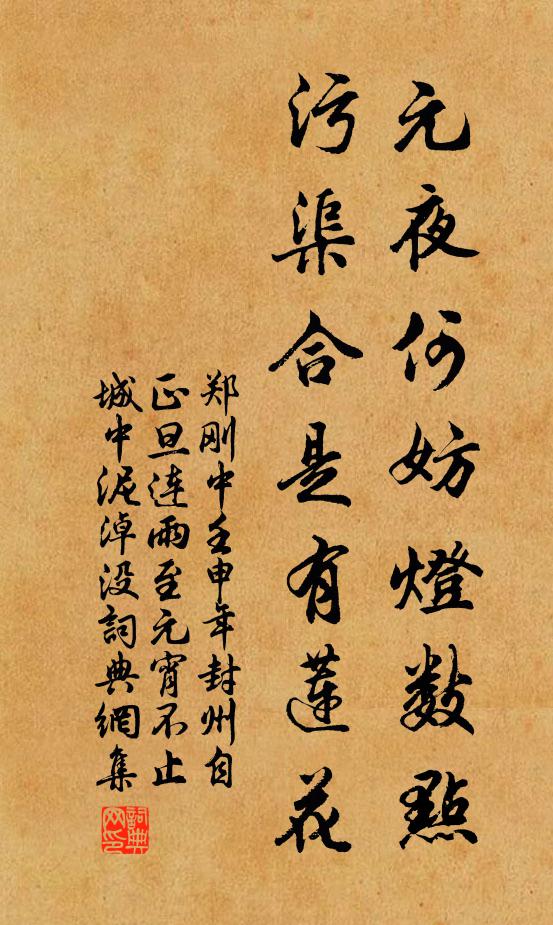 元夜何妨燈數點
污渠合是有蓮花
郑刚中壬申年封州自
正旦连雨至元宵不止
城中泥淖没詞典網集
詞典网印